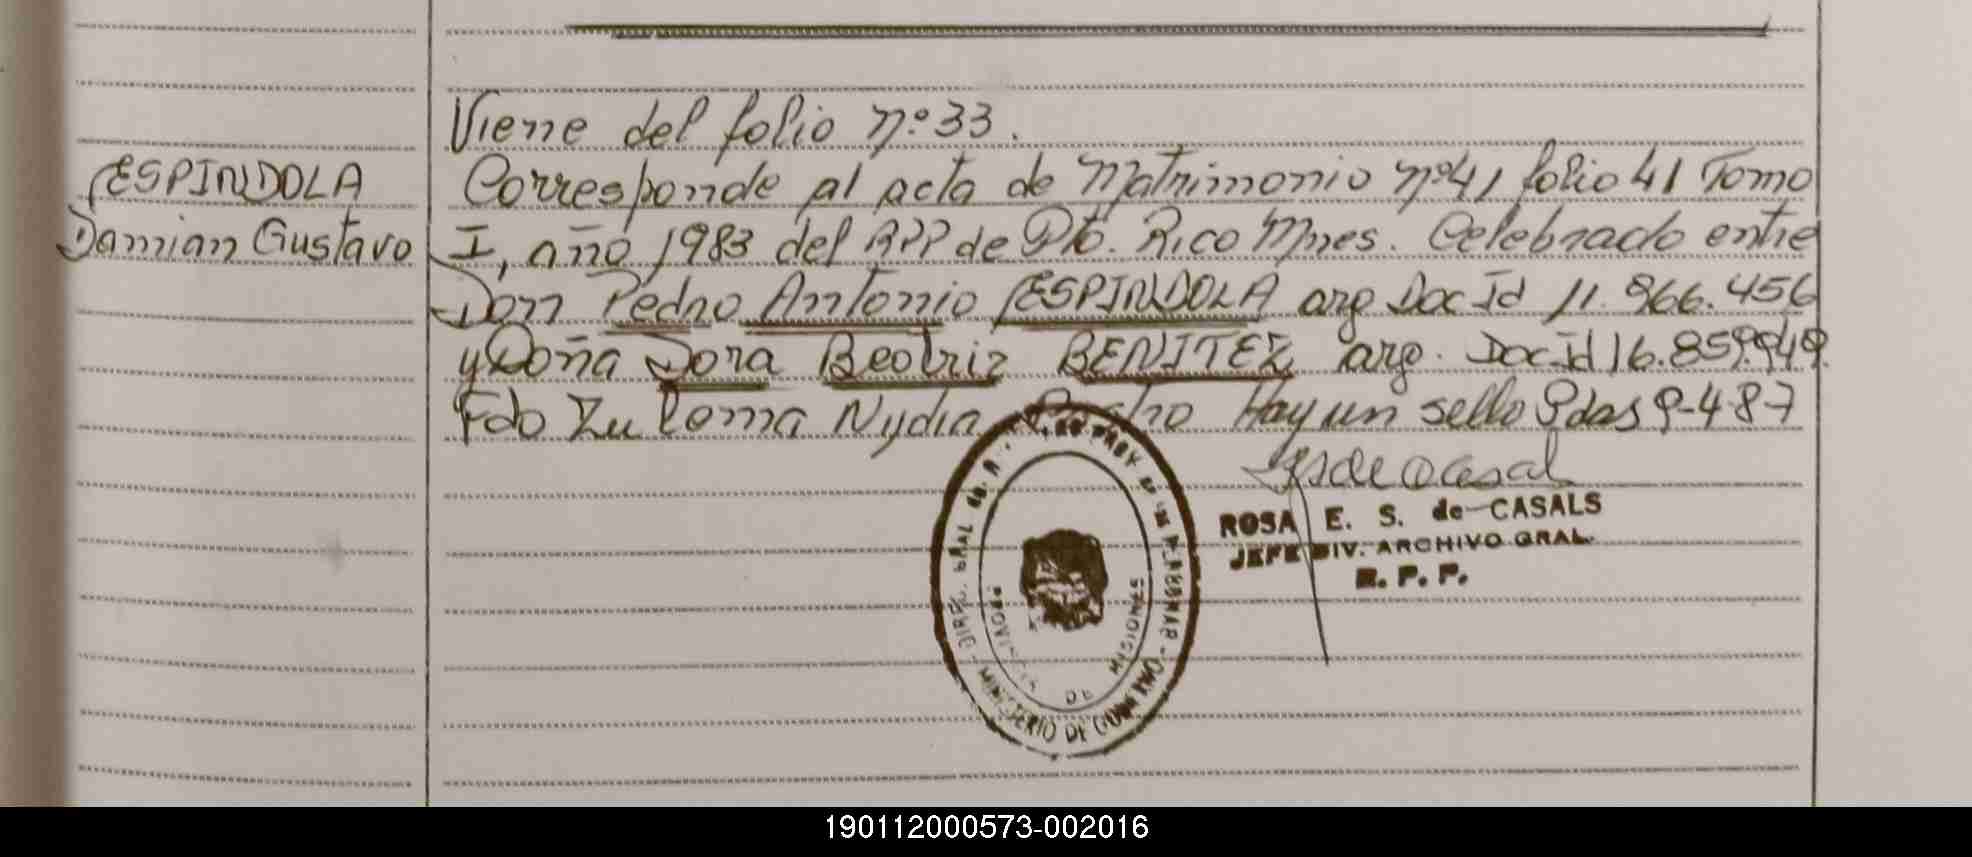 Viene del folio nº 33.
ESPINDOLA
Damian Gustavo
Corresponde al acta de Matrimonio nº 41 folio 41 Tomo
I, año 1983 del RPP de Pto. Rico Mnes. Celebrado entre
Don Pedro Antonio ESPINDOLA arg Doc Id 11.966.456
y Doña Dora Beatriz BENITEZ arg. Doc Id 16.859.949.
Fdo Zulema Nydia Castro Hay un sello Pdas 9-4-87
ROSA E. S. de CASALS
JEFE DIV. ARCHIVO GRAL.
R. P. P.
PROVINCIA DE MISIONES
MINISTERIO DE
190112000573-002016